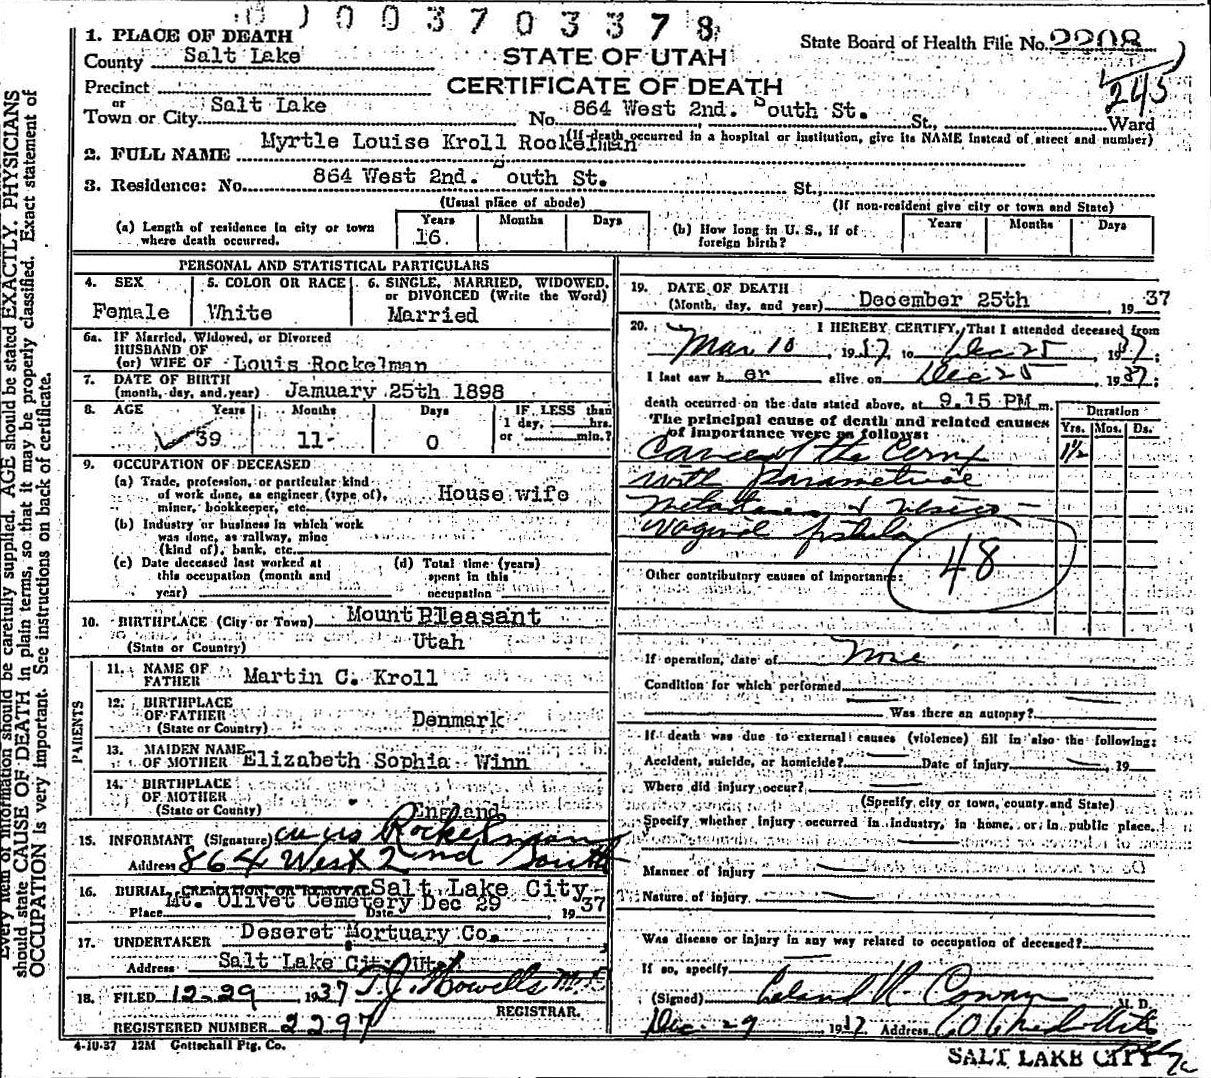 003703378
1. PLACE OF DEATH
County Salt Lake
STATE OF UTAH
State Board of Health File No. 2208
Precinct
CERTIFICATE OF DEATH
245
or
Town or City Salt Lake No. 864 West 2nd. South St. St., Ward
(If death occurred in a hospital or institution, give its NAME instead of street and number)
2. FULL NAME Myrtle Louise Kroll Rockelman
3. Residence: No. 864 West 2nd. South St. St.,
(Usual place of abode) (If non-resident give city or town and State)
(a) Length of residence in city or town where death occurred. Years 16 Months Days
(b) How long in U. S., if of foreign birth? Years Months Days
PERSONAL AND STATISTICAL PARTICULARS
4. SEX Female
5. COLOR OR RACE White
6. SINGLE, MARRIED, WIDOWED, or DIVORCED (Write the Word) Married
6a. If Married, Widowed, or Divorced
HUSBAND OF
(or) WIFE OF Louis Rockelman
7. DATE OF BIRTH
(month, day, and year) Jamuary 25th 1898
8. AGE Years 39 Months 11 Days 0
IF LESS than
1 day, hrs.
or min.?
9. OCCUPATION OF DECEASED
(a) Trade, profession, or particular kind
of work done, as engineer (type of),
miner, bookkeeper, etc. House wife
(b) Industry or business in which work
was done, as railway, mine
(kind of), bank, etc.
(c) Date deceased last worked at
this occupation (month and
year)
(d) Total time (years)
spent in this
occupation
10. BIRTHPLACE (City or Town) Mount Pleasant
(State or Country) Utah
PARENTS
11. NAME OF
FATHER Martin C. Kroll
12. BIRTHPLACE
OF FATHER
(State or Country) Denmark
13. MAIDEN NAME
OF MOTHER Elizabeth Sophia Winn
14. BIRTHPLACE
OF MOTHER
(State or Country) England
15. INFORMANT (Signature) Louis Rockelman
Address 864 West 2nd South
16. BURIAL, CREMATION, OR REMOVAL Salt Lake City
Place Mt. Olivet Cemetery Date Dec 29 1937
17. UNDERTAKER Deseret Mortuary Co.
Address Salt Lake City Utah
18. FILED 12-29 1937 T. J. Howells M.D.
REGISTRAR.
REGISTERED NUMBER 2297
4-10-37 12M Gottschall Ptg. Co.
19. DATE OF DEATH
(Month, day, and year) December 25th 1937
20. I HEREBY CERTIFY, That I attended deceased from
Mar 10, 1937, to Dec 25, 1937;
I last saw her alive on Dec 25, 1937;
death occurred on the date stated above, at 9.15 PM m.
The principal cause of death and related causes
of importance were as follows:
Duration
Yrs. Mos. Ds.
Cancer of the Cervix 1½
with Parametrial
Metastases & Vesico-
vaginal fistula
48
Other contributory causes of importance:
If operation, date of None
Condition for which performed
Was there an autopsy?
If death was due to external causes (violence) fill in also the following:
Accident, suicide, or homicide? Date of injury 19
Where did injury occur?
(Specify city or town, county and State)
Specify whether injury occurred in industry, in home, or in public place.
Manner of injury
Nature of injury
Was disease or injury in any way related to occupation of deceased?
If so, specify
(Signed) Leland R. Cowan M. D.
Dec. 29 1937 Address
SALT LAKE CITY
Every item of information should be carefully supplied. AGE should be stated EXACTLY. PHYSICIANS
should state CAUSE OF DEATH in plain terms, so that it may be properly classified. Exact statement of
OCCUPATION is very important. See instructions on back of certificate.